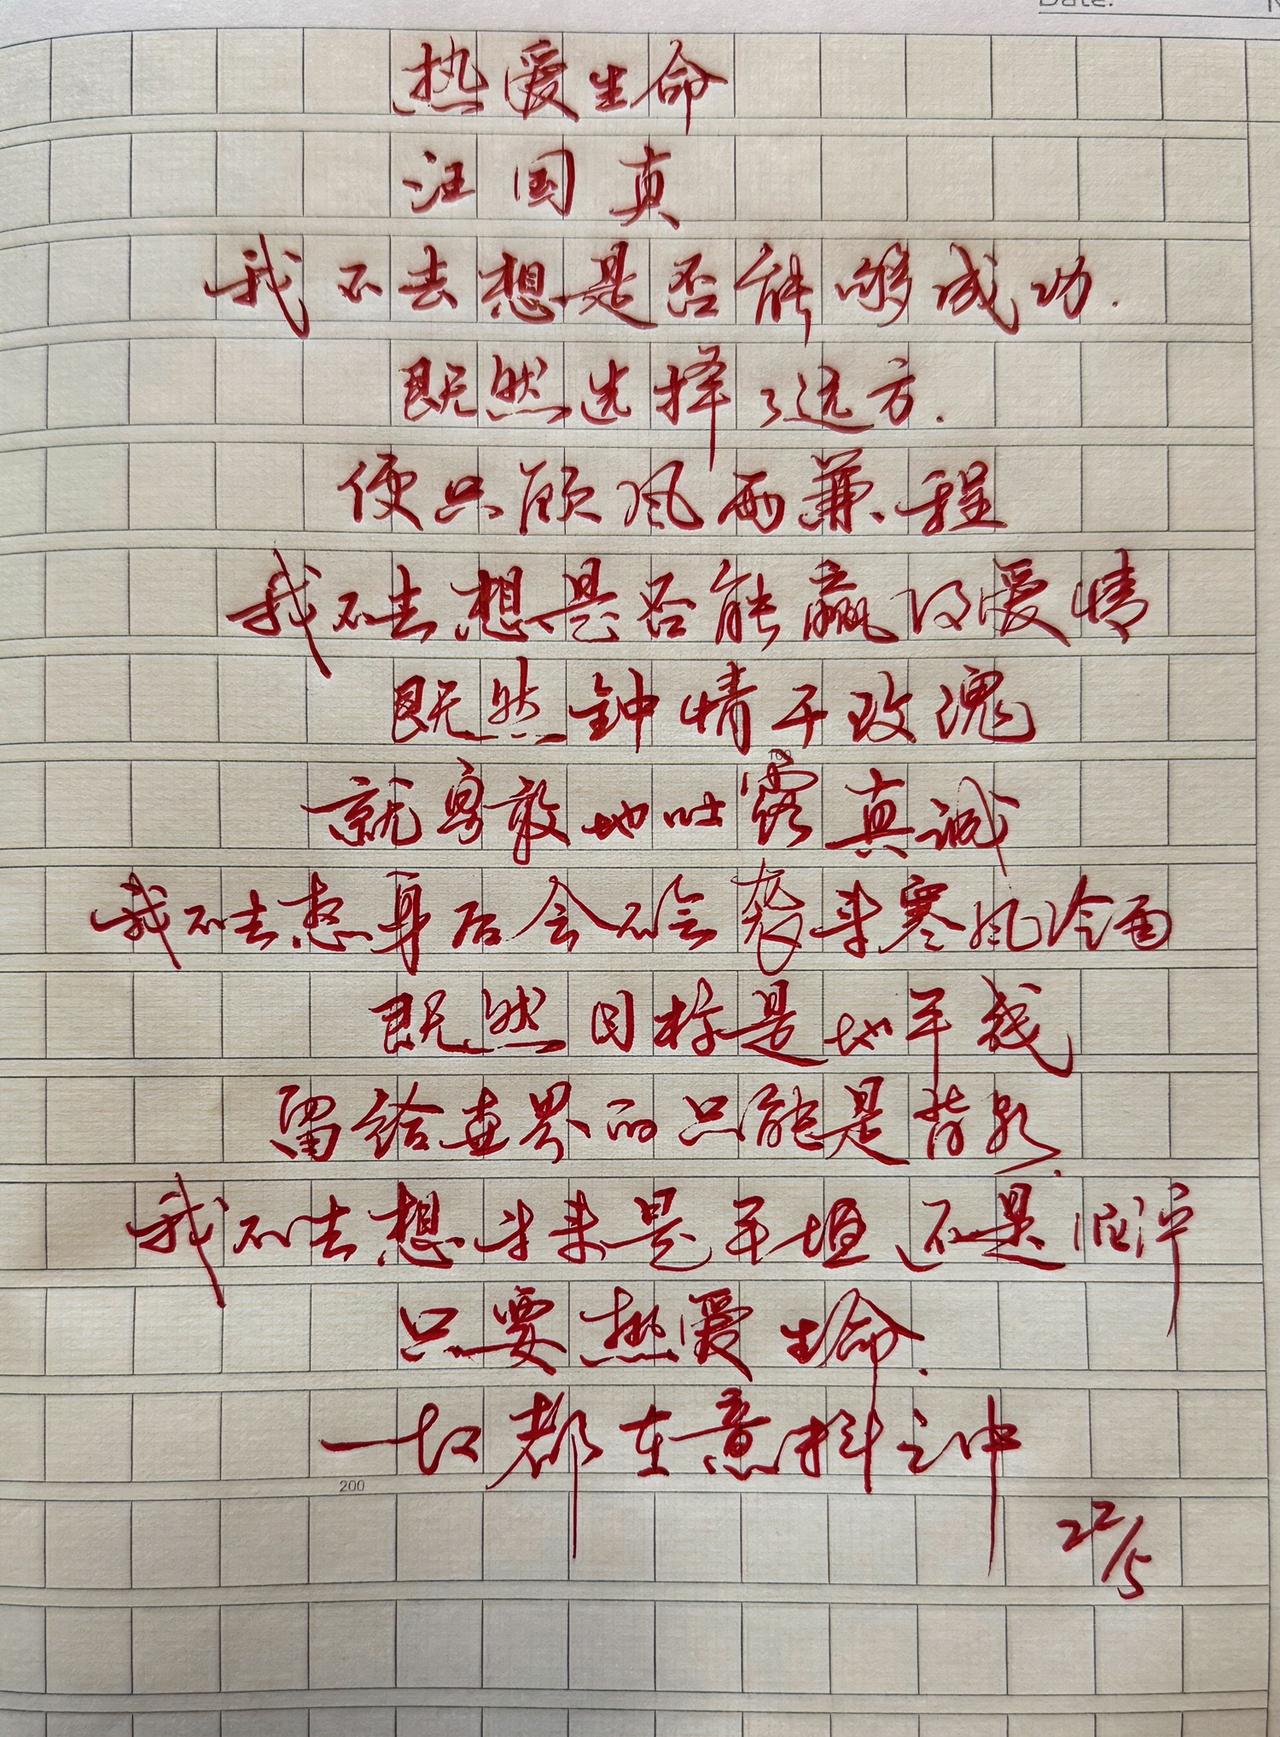 Date:
热爱生命
汪国真
我不去想是否能够成功.
既然选择了远方.
便只顾风雨兼程
我不去想是否能赢得爱情
既然钟情于玫瑰
就勇敢地吐露真诚
100
我不去想身后会不会袭来寒风冷雨
既然目标是地平线
留给世界的只能是背影
我不去想未来是平坦还是泥泞
只要热爱生命.
一切都在意料之中
200
22/5